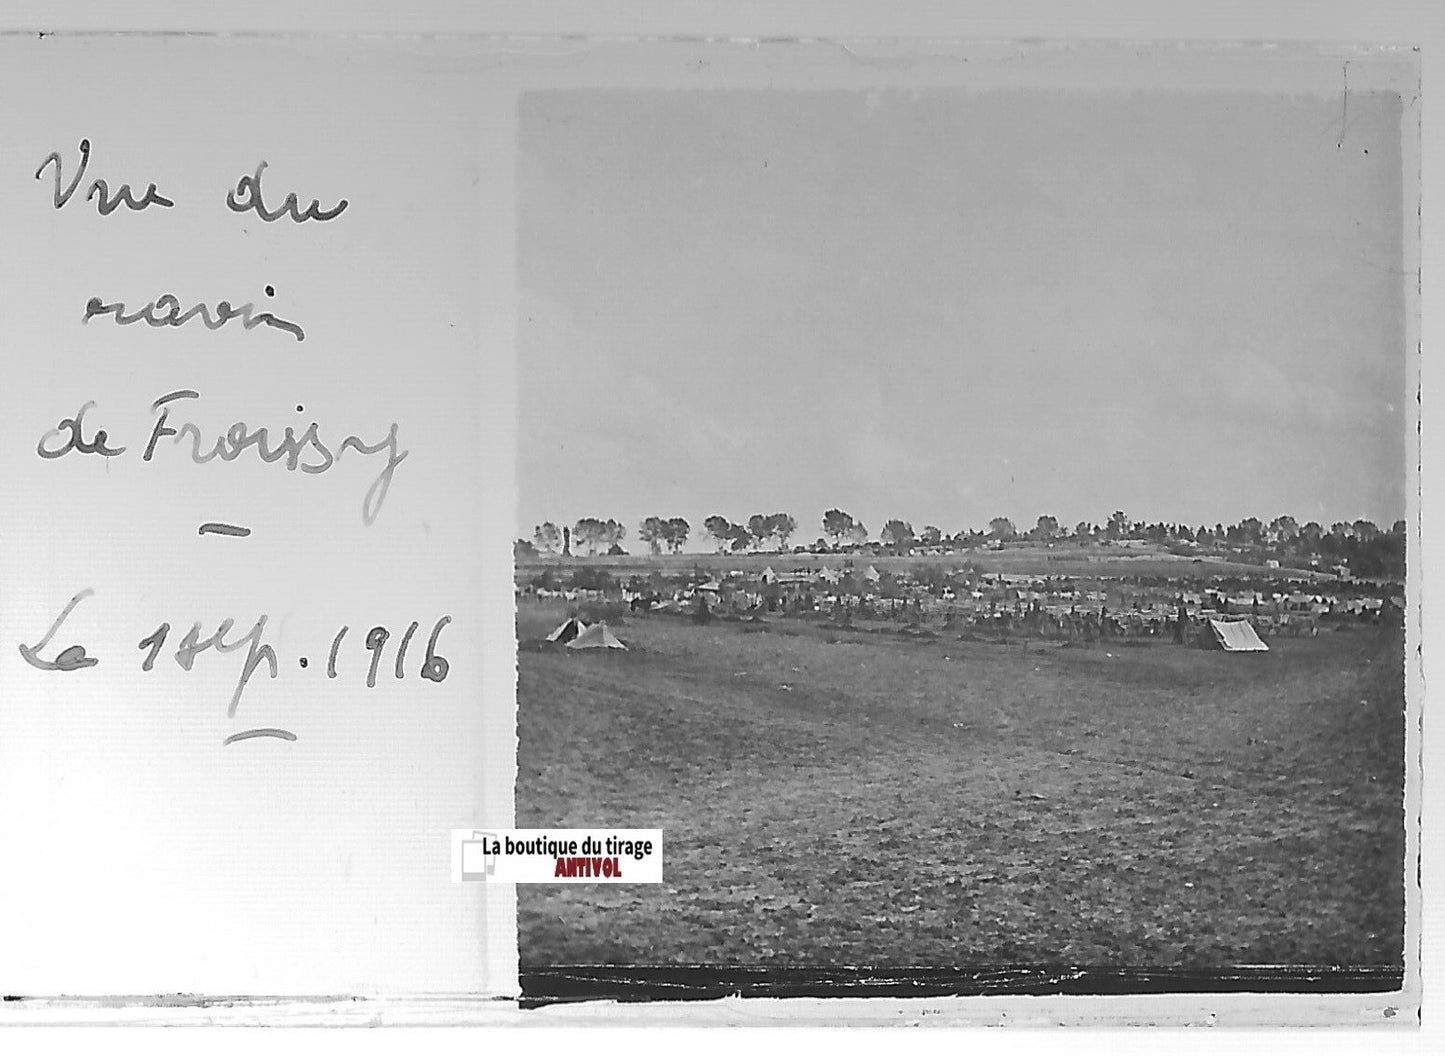 Vue du
ravin
de Froissy
–
Le 1 sep. 1916
–
La boutique du tirage
ANTIVOL